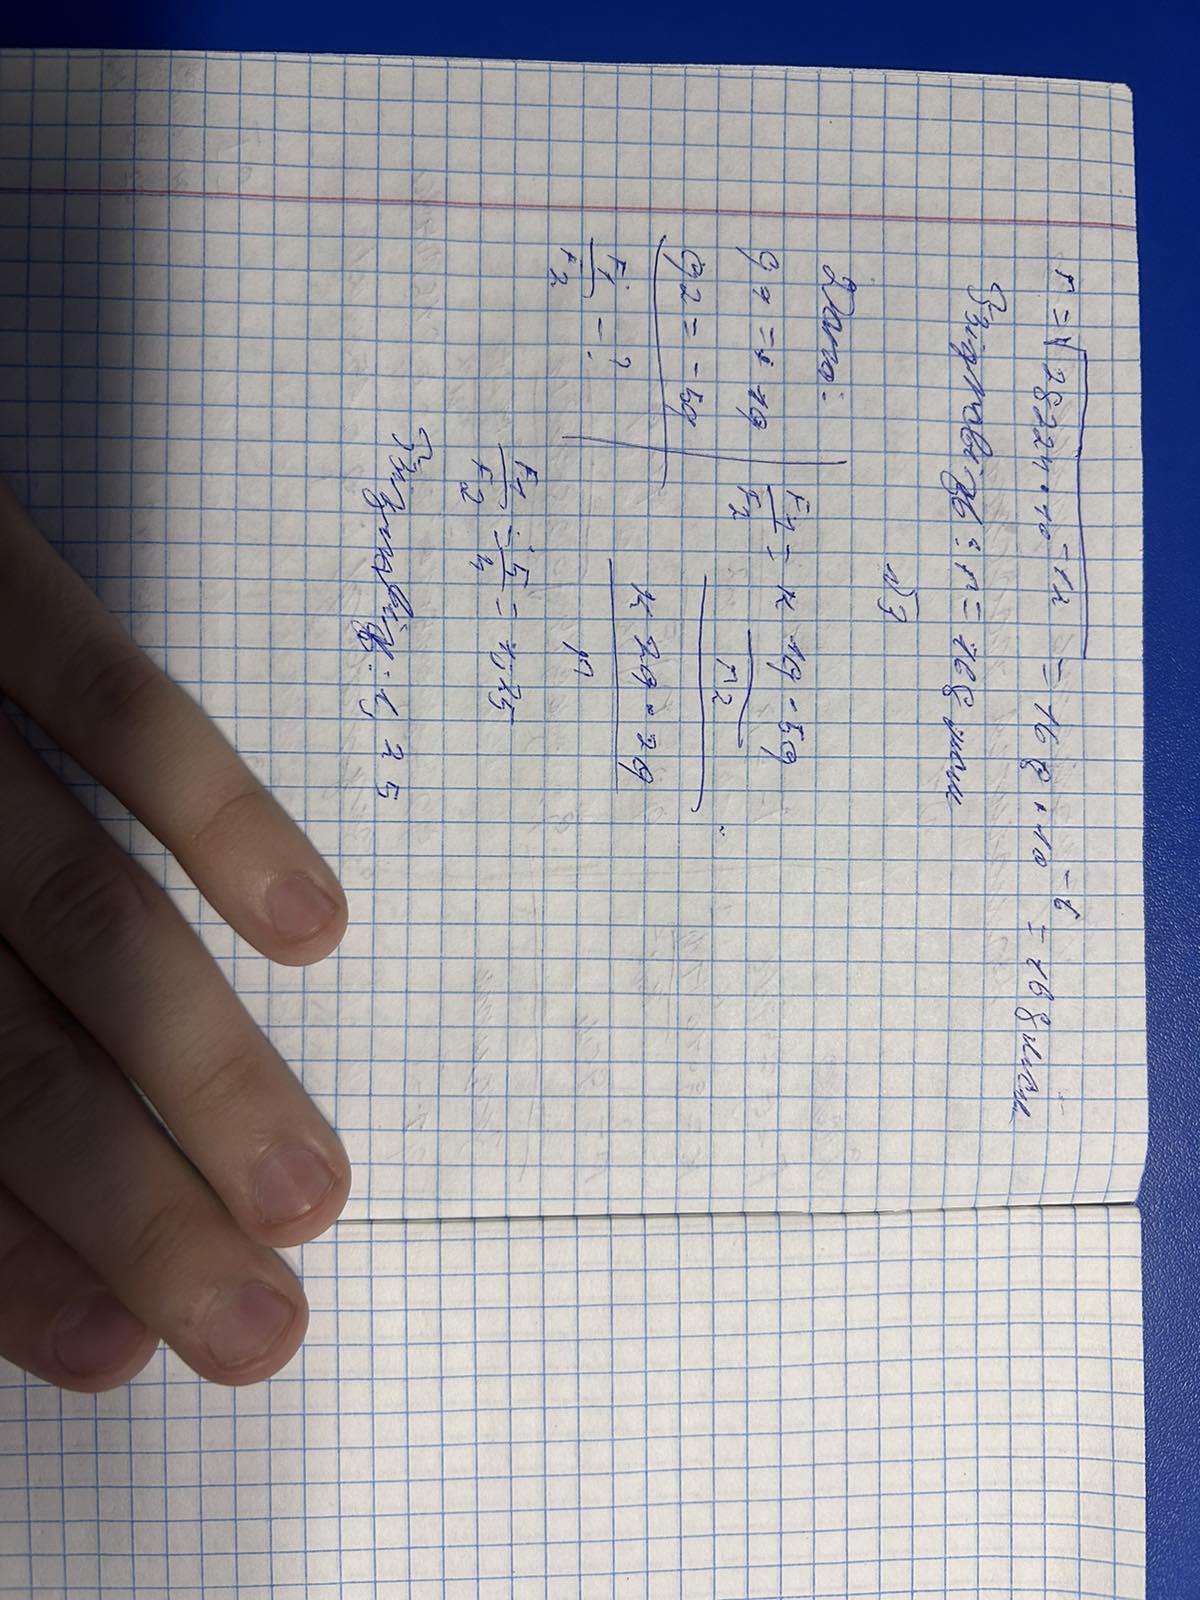 r = √28224 · 10⁻¹² = 168 · 10⁻⁶ = 168 мкм
Відповідь: r = 168 мкм
№3
Дано:
q1 = 1q
q2 = -5q
F1/F2 - ?
F1/F2 = k 1q · 5q
r2
k 2q · 2q
F1/F2 = 5/4 = 1,25
Відповідь: 1,25